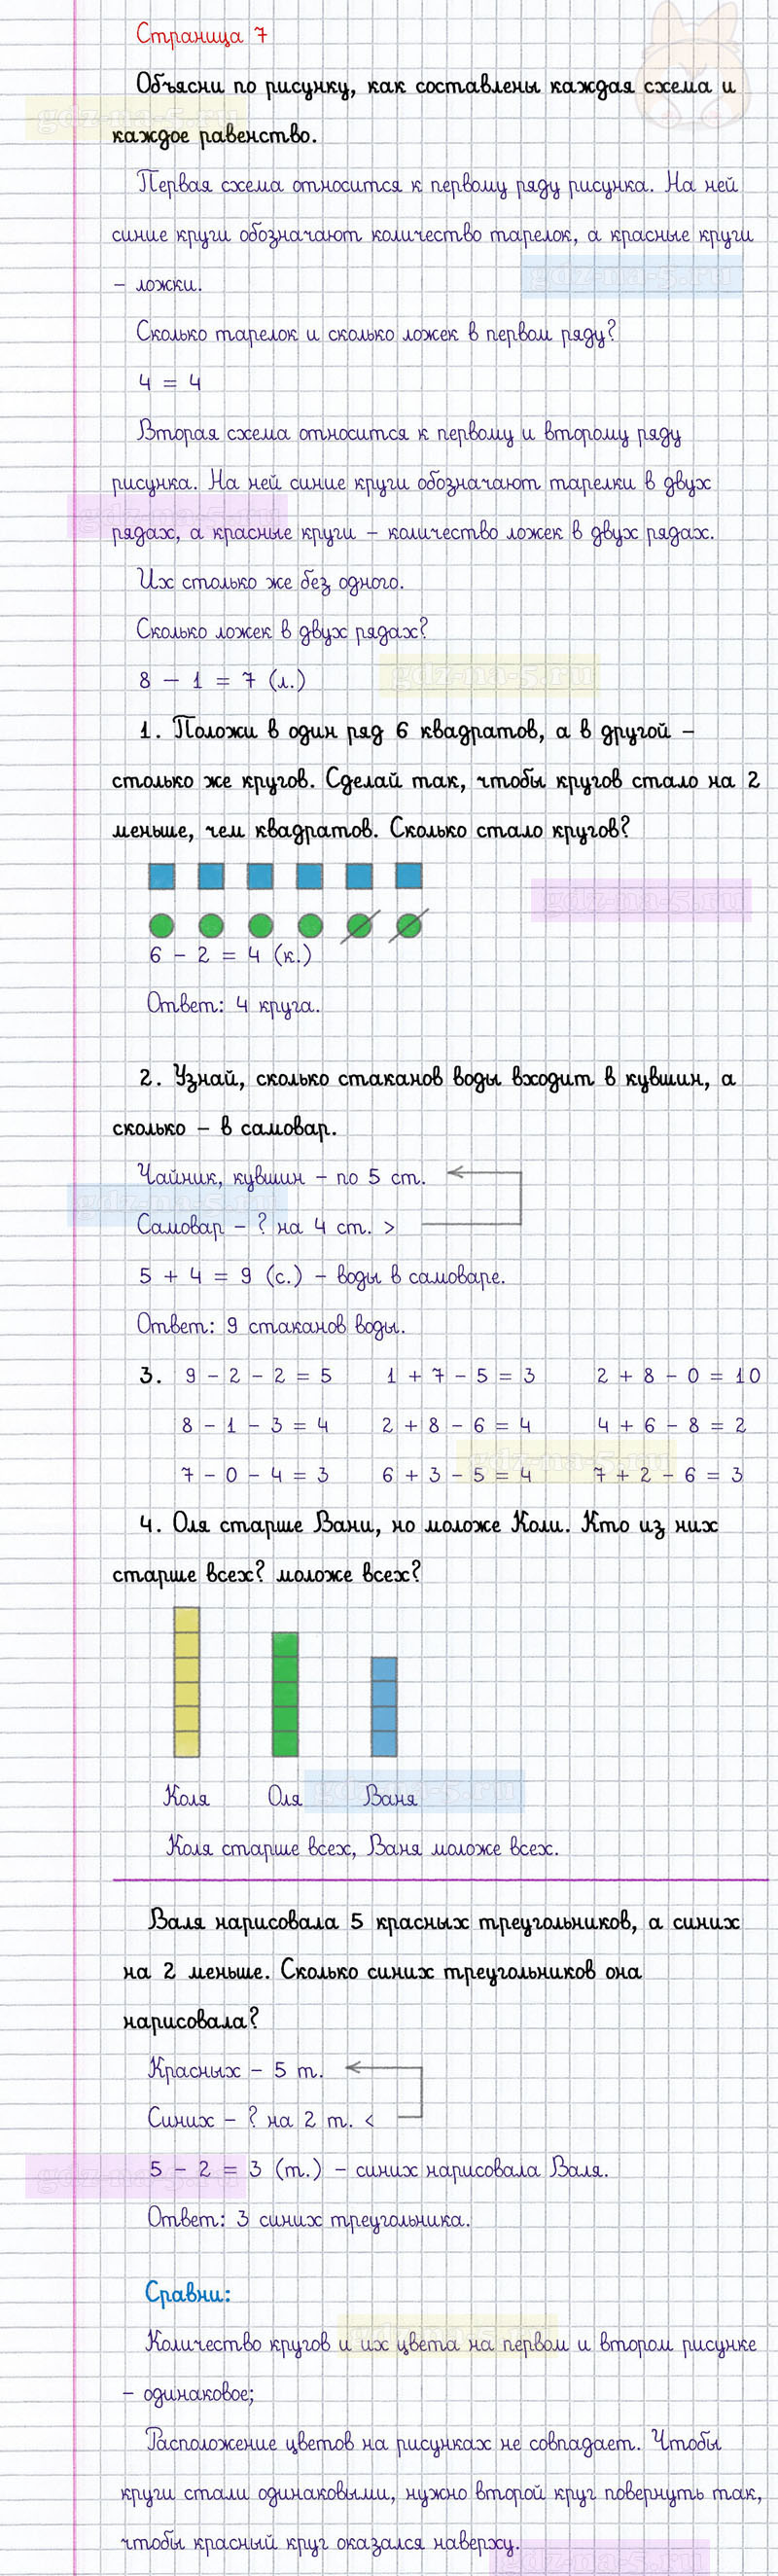 Страница 7
Объясни по рисунку, как составлены каждая схема и
каждое равенство.
Первая схема относится к первому ряду рисунка. На ней
синие круги обозначают количество тарелок, а красные круги
– ложки.
Сколько тарелок и сколько ложек в первом ряду?
4 = 4
Вторая схема относится к первому и второму ряду
рисунка. На ней синие круги обозначают тарелки в двух
рядах, а красные круги – количество ложек в двух рядах.
Их столько же без одного.
Сколько ложек в двух рядах?
8 – 1 = 7 (л.)
1. Положи в один ряд 6 квадратов, а в другой –
столько же кругов. Сделай так, чтобы кругов стало на 2
меньше, чем квадратов. Сколько стало кругов?
6 – 2 = 4 (к.)
Ответ: 4 круга.
2. Узнай, сколько стаканов воды входит в кувшин, а
сколько – в самовар.
Чайник, кувшин – по 5 ст.
Самовар – ? на 4 ст. >
5 + 4 = 9 (с.) – воды в самоваре.
Ответ: 9 стаканов воды.
3. 9 – 2 – 2 = 5 1 + 7 – 5 = 3 2 + 8 – 0 = 10
8 – 1 – 3 = 4 2 + 8 – 6 = 4 4 + 6 – 8 = 2
7 – 0 – 4 = 3 6 + 3 – 5 = 4 7 + 2 – 6 = 3
4. Оля старше Вани, но моложе Коли. Кто из них
старше всех? моложе всех?
Коля Оля Ваня
Коля старше всех, Ваня моложе всех.
Валя нарисовала 5 красных треугольников, а синих
на 2 меньше. Сколько синих треугольников она
нарисовала?
Красных – 5 т.
Синих – ? на 2 т. <
5 – 2 = 3 (т.) – синих нарисовала Валя.
Ответ: 3 синих треугольника.
Сравни:
Количество кругов и их цвета на первом и втором рисунке
– одинаковое;
Расположение цветов на рисунках не совпадает. Чтобы
круги стали одинаковыми, нужно второй круг повернуть так,
чтобы красный круг оказался наверху.